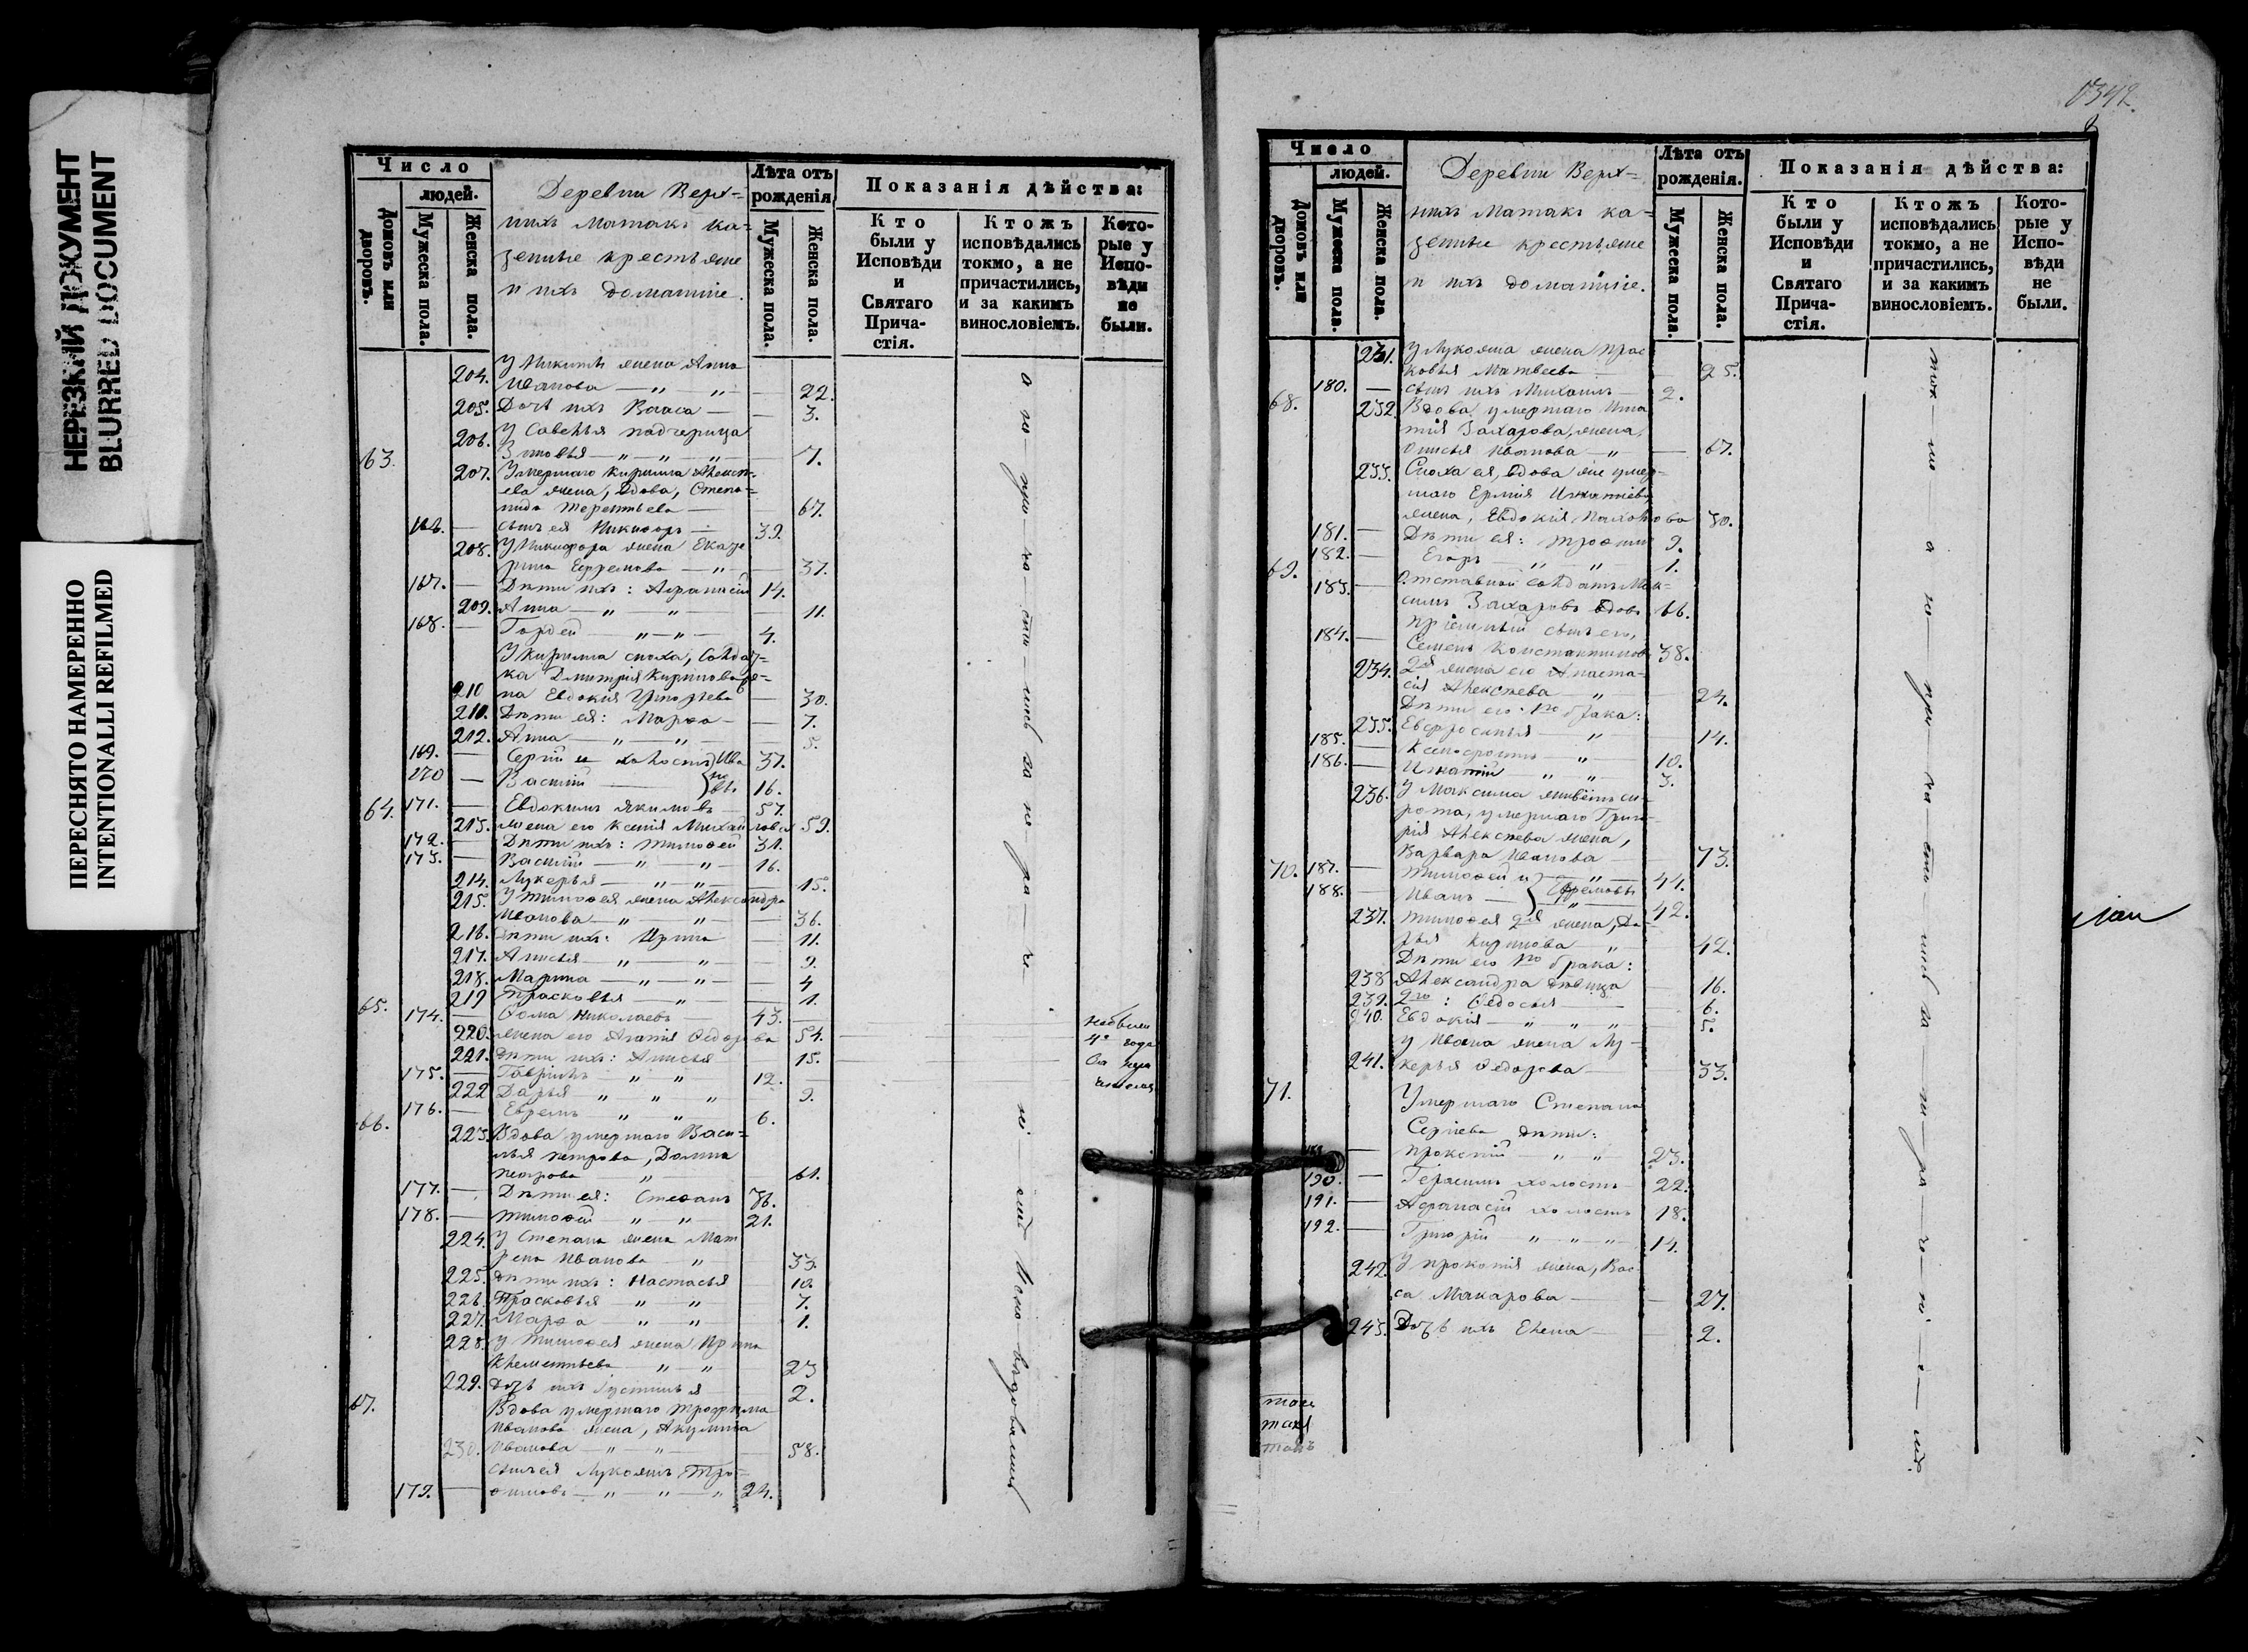 НЕРЕЗКИЙ ДОКУМЕНТ
BLURRED DOCUMENT
ПЕРЕСНЯТО НАМЕРЕННО
INTENTIONALLI REFILMED
Число
людей.
Домовъ или дворовъ.
Мужеска пола.
Женска пола.
Деревни Верх-
нихъ Матакъ ка-
зенные крестьяне
и ихъ домашніе.
Лѣта отъ рожденія
Мужеска пола.
Женска пола.
Показанія дѣйства:
Кто были у Исповѣди и Святаго Прича-стія.
Ктожъ исповѣдались токмо, а не причастились, и за какимъ винословіемъ.
Кото-рые у Испо-вѣди не были.
204. У Никиты жена Анна
Иванова 22.
205. Дочь ихъ Васса 3.
206. У Савелья падчерица
Зиновья 7.
63. 207. Умершаго Кирилла Алексѣ-
ева жена, вдова, Степа-
нида Терентьева 67.
166. сынъ ея Никифоръ 39.
208. У Никифора жена Екате
рина Ефремова 37.
167. Дѣти ихъ: Афанасій 14.
209. Анна 11.
168. Гордей 4.
У Кирилла сноха, солдат-
ка Дмитрія Кирилова же-
210 на Евдокія Григорьева 30.
211. Дѣти ея: Марѳа 7.
212. Анна 5.
169. Сергій и холостъ Ива 37.
170 Василій новы 16.
64. 171. Евдокимъ Якимовъ 57.
213. жена его Ксенія Михайлова 59.
172. Дѣти ихъ: Тимоѳей 31.
173. Василій 16.
214. Лукерья 15.
215. У Тимоѳея жена Александра
Иванова 36.
216. Дѣти ихъ: Ирина 11.
217. Анисья 9.
218. Марина 4
219 Прасковья 1.
65. 174. Ѳома Николаевъ 43.
220. жена его Агаѳія Ѳедорова 54.
221. дѣти ихъ: Анисья 15.
175. Гаврилъ 12.
222 Дарья 9.
176. Ефремъ 6.
Небыли
4е года
66. 223. Вдова умершаго Васи-
лья Петрова, Домна
Петрова 61.
177. Дѣти ея: Степанъ 36.
178. Тимоѳей 21.
224. У Степана жена Мат
рена Иванова 33.
225. дѣти ихъ: Настасья 10.
226. Прасковья 7.
227. Марѳа 1.
228. У Тимоѳея жена Ирина
Клементьева 23
229. дочь ихъ Устинья 2.
67. Вдова умершаго Трофима
Иванова жена, Акулина
230. Иванова 58.
сынъ ея Лукоянъ Тро-
179. ѳимовъ 24.
0342
Число
людей.
Домовъ или дворовъ.
Мужеска пола.
Женска пола.
Деревни Верх-
нихъ Матакъ ка-
зенные крестьяне
и ихъ домашніе.
Лѣта отъ рожденія.
Мужеска пола.
Женска пола.
Показанія дѣйства:
Кто были у Исповѣди и Святаго Прича-стія.
Ктожъ исповѣдались токмо, а не причастились, и за какимъ винословіемъ.
Кото-рые у Испо-вѣди не были.
231. У Лукояна жена Прас
ковья Матвеева 25.
180. сынъ ихъ Михаилъ 2.
68. 232. Вдова умершаго Игна
тія Захарова, жена,
Анисья Иванова 67.
233. Сноха ея, вдова же умер-
шаго Ермія Игнатіева
жена, Евдокія Пахомова 30.
181. Дѣти ея: Трофимъ 9.
182. Егоръ 1.
69. 183. Отставной солдатъ Мак-
симъ Захаровъ вдовъ 66.
Пріемный сынъ его,
184. Семенъ Константиновъ 38.
234. 2я жена его Анаста-
сія Алексѣева 24.
Дѣти его 1го брака:
235. Евфросинья 14.
185. Ксенофонтъ 10.
186. Игнатій 3.
236. У Максима живетъ си-
рота, умершаго Григо-
рія Алексѣева жена,
Варвара Иванова 73.
70. 187. Тимоѳей и 44.
188. Иванъ Ефремовы 42.
237. Тимоѳея 2я жена, Да-
рья Кирилова 42.
Дѣти его 1го брака:
238 Александра дѣвица 16.
239. 2го: Ѳедосья 6.
240. Евдокія 5.
У Ивана жена Лу-
241. керья Ѳедорова 33.
71. Умершаго Степана
Сергіева дѣти:
189. Прокопій 23.
190. Герасимъ холостъ 22.
191. Афанасій холостъ 18.
192. Григорій 14.
242 У Прокопія жена, Вас
са Макарова 27.
243. Дочь ихъ Елена 2.